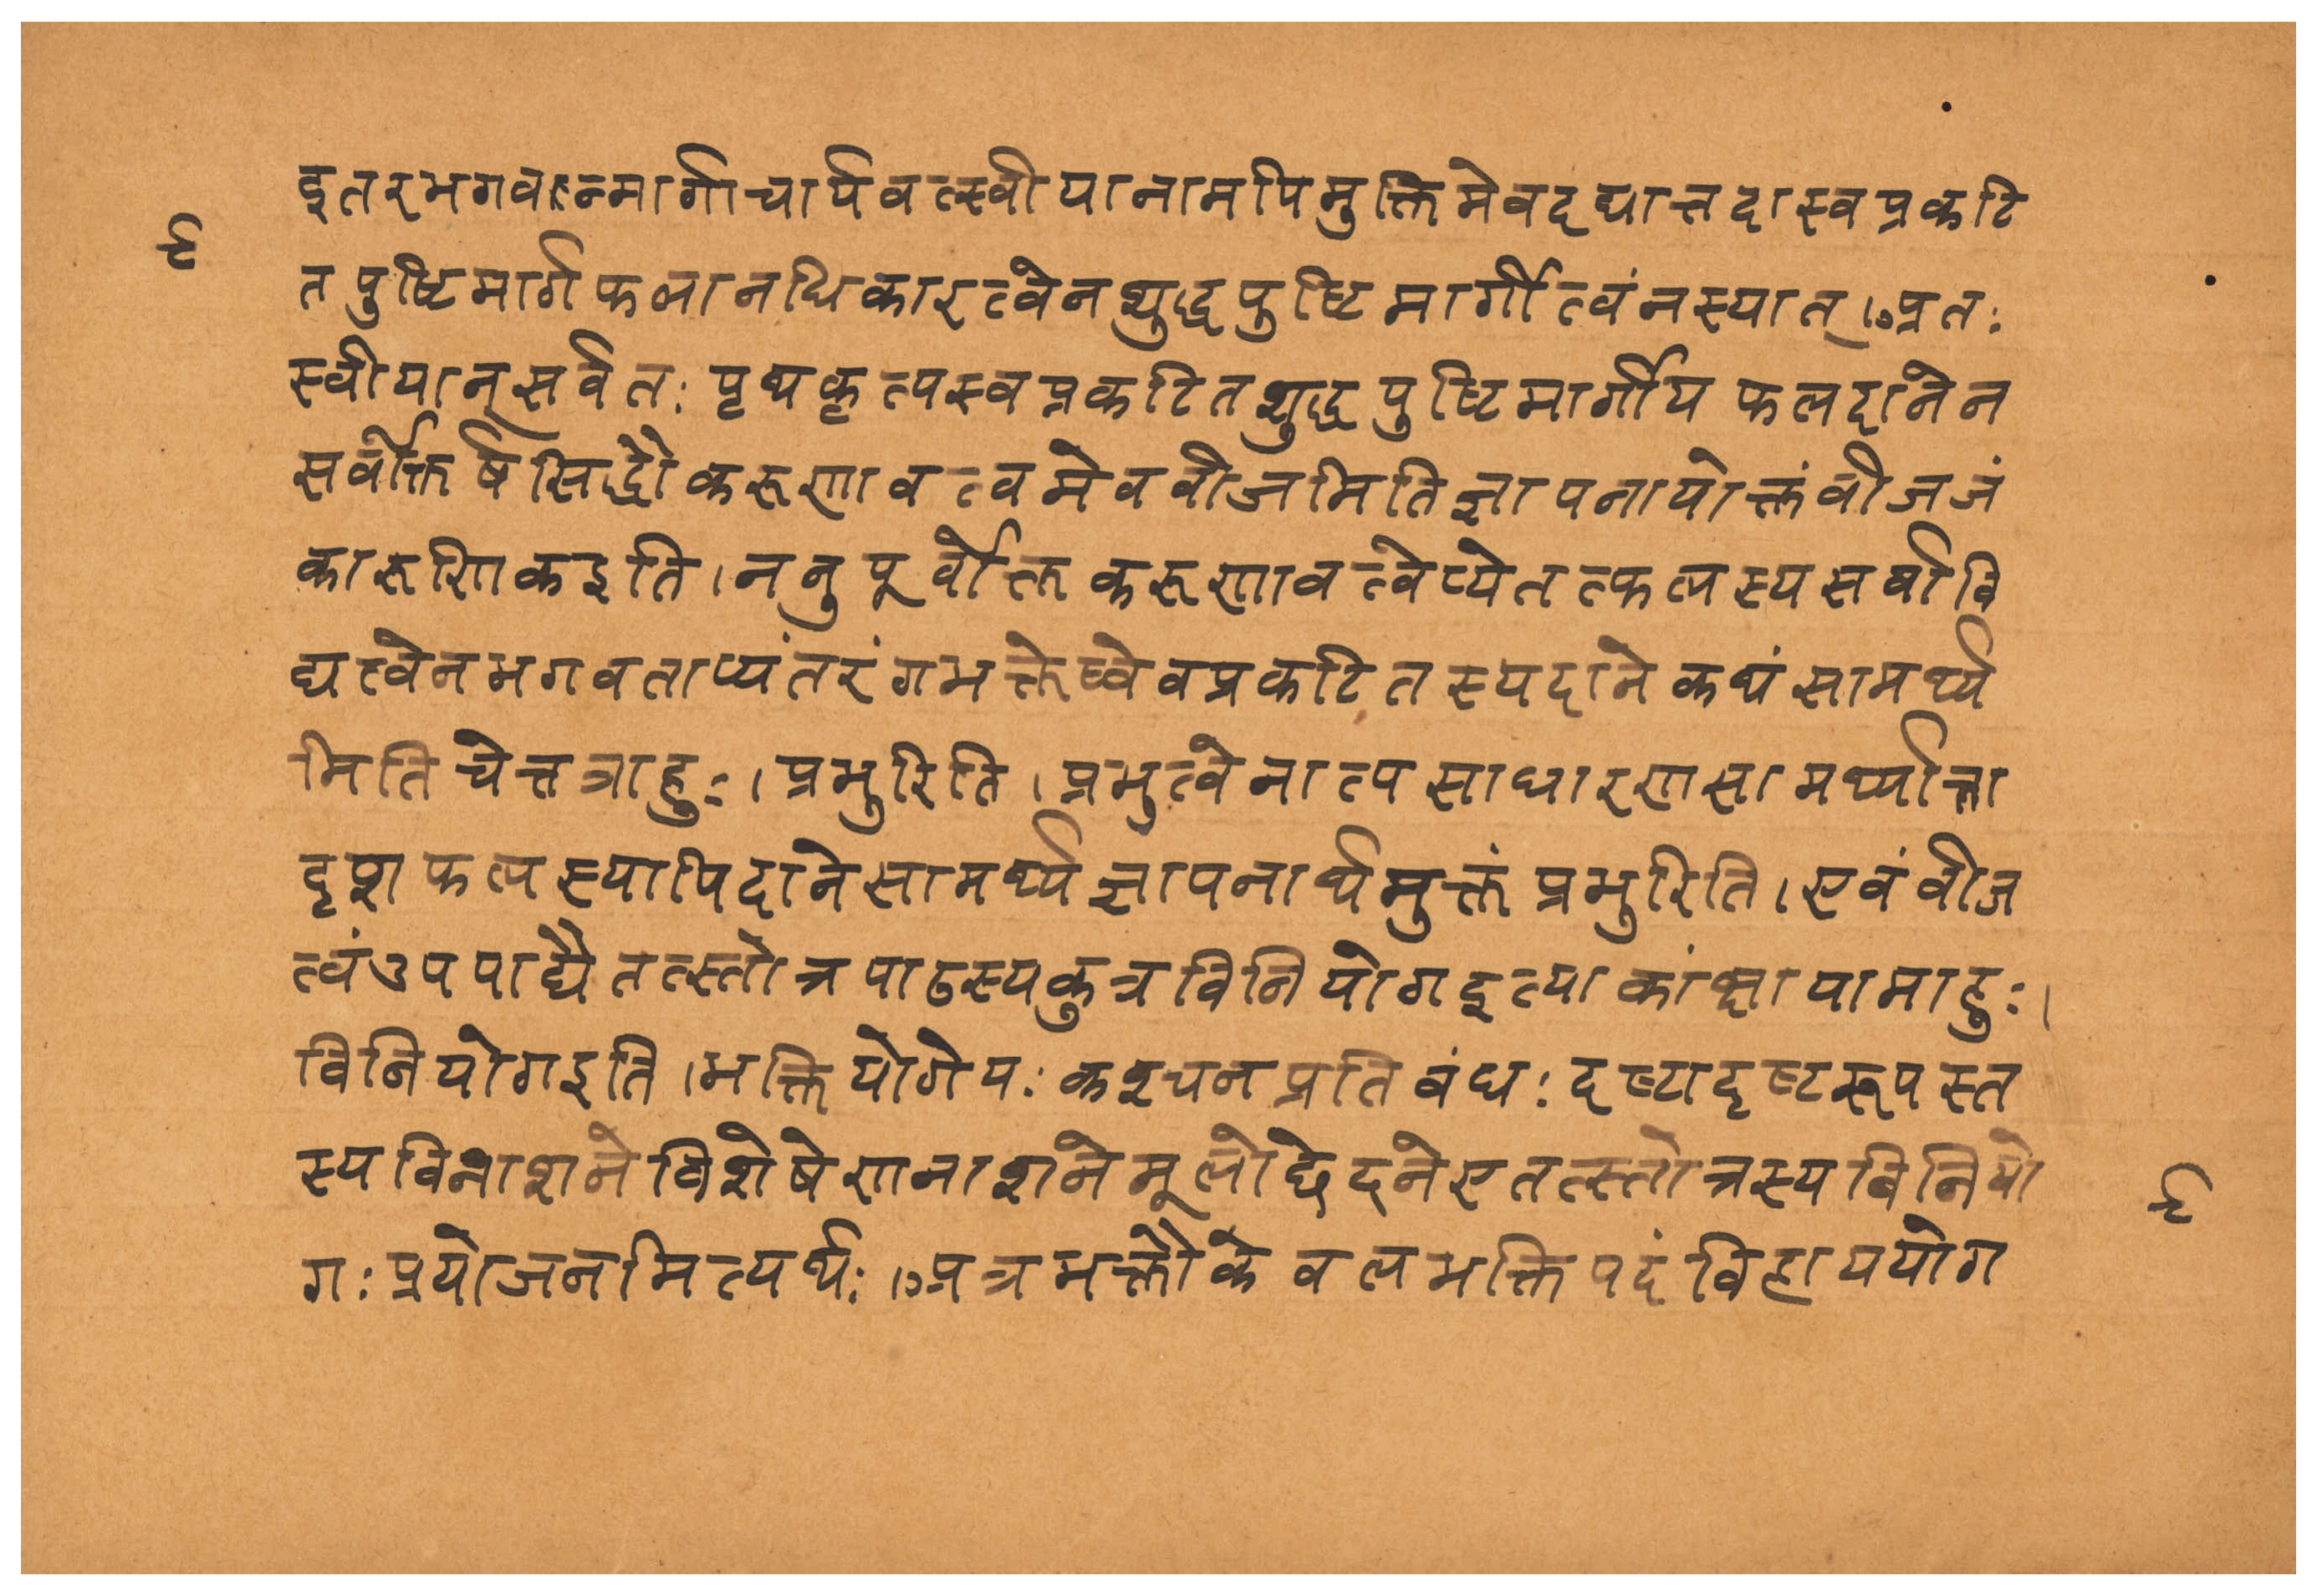 इतरभगवन्मार्गाचार्यवत्स्वीयानामपिमुक्तिमेवदद्यात्तदास्वप्रकटि
६
तपुष्टिमार्गफलानधिकारत्वेनशुद्धपुष्टिमार्गीत्वंनस्यात्।अतः
स्वीयान्सर्वतःपृथकृत्यस्वप्रकटितशुद्धपुष्टिमार्गीयफलदानेन
सर्वोत्कर्षसिद्धौकरुणावत्वमेवबीजमितिज्ञापनायोक्तंबीजजं
कारुणिकइति।ननुपूर्वोक्तकरुणावत्वेप्येतत्फलस्यसर्वावि
द्यत्वेनभगवताप्यंतरंगभक्तेष्वेवप्रकटितस्यदानेकथंसामर्थ्य
मितिचेत्तत्राहुः।प्रभुरिति।प्रभुत्वेनात्यसाधारणसामर्थ्यात्ता
दृशफलस्यापिदानेसामर्थ्यज्ञापनार्थमुक्तंप्रभुरिति।एवंबीज
त्वंउपपाद्यैतत्स्तोत्रपाठस्यकुत्रविनियोगइत्याकांक्षायामाहुः।
विनियोगइति।भक्तियोगेयःकश्चनप्रतिबंधःदृष्टादृष्टरूपस्त
स्यविनाशनेविशेषेणनाशनेमूलोछेदनेएतत्स्तोत्रस्यविनियो
६
गःप्रयोजनमित्यर्थः।अत्रभक्तौकेवलभक्तिपदंविहाययोग